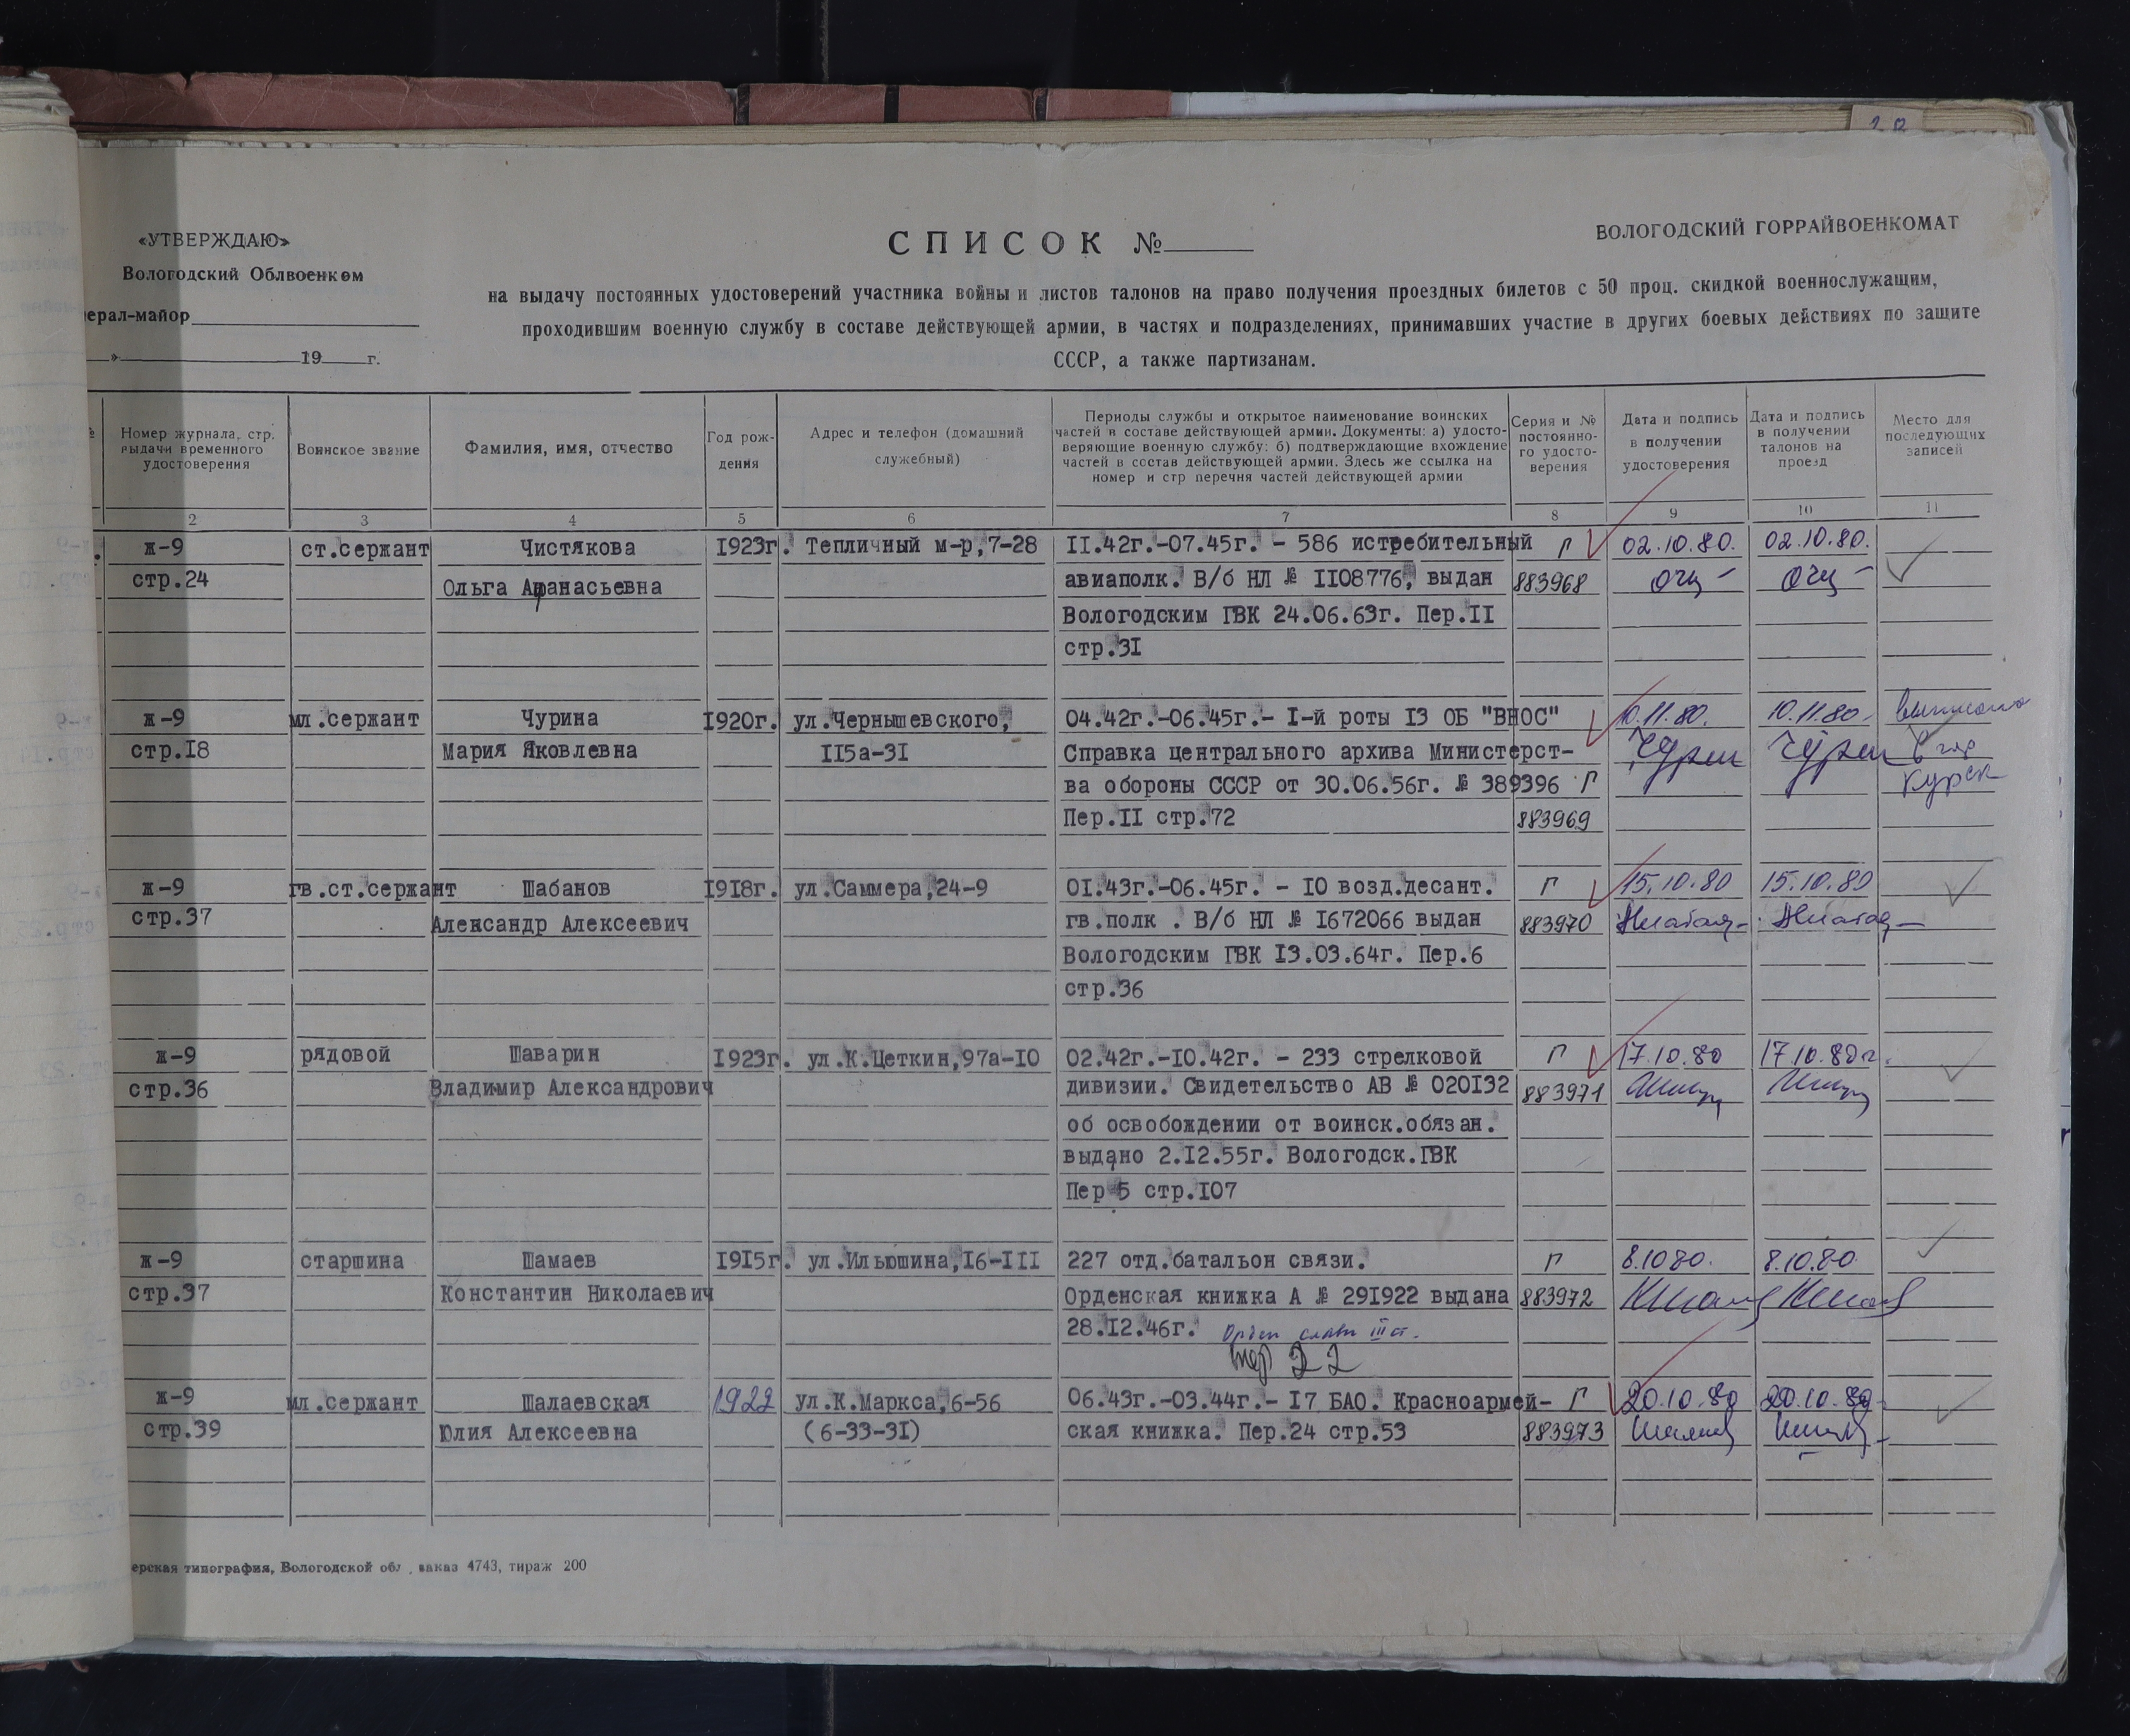 «УТВЕРЖДАЮ»
Вологодский Облвоенком
ерал-майор
» 19 г.
СПИСОК №
ВОЛОГОДСКИЙ ГОРРАЙВОЕНКОМАТ
на выдачу постоянных удостоверений участника войны и листов талонов на право получения проездных билетов с 50 проц. скидкой военнослужащим,
проходившим военную службу в составе действующей армии, в частях и подразделениях, принимавших участие в других боевых действиях по защите
СССР, а также партизанам.
Номер журнала, стр.
выдачи временного
удостоверения
Воинское звание
Фамилия, имя, отчество
Год рож-
дения
Адрес и телефон (домашний
служебный)
Периоды службы и открытое наименование воинских
частей в составе действующей армии. Документы: а) удосто-
веряющие военную службу; б) подтверждающие вхождение
частей в состав действующей армии. Здесь же ссылка на
номер и стр перечня частей действующей армии
Серия и №
постоянно-
го удосто-
верения
Дата и подпись
в получении
удостоверения
Дата и подпись
в получении
талонов на
проезд
Место для
последующих
записей
2 3 4 5 6 7 8 9 10 11
ж-9 ст.сержант Чистякова 1923г. Тепличный м-р,7-28 II.42г.-07.45г. - 586 истребительный Г 02.10.80. 02.10.80.
стр.24 Ольга Афанасьевна авиаполк. В/б НЛ № II08776, выдан 883968
Вологодским ГВК 24.06.63г. Пер.II
стр.3I
ж-9 мл.сержант Чурина I920г. ул.Чернышевского, 04.42г.-06.45г.- I-й роты I3 ОБ "ВНОС" 10.11.80. 10.11.80. выписана
стр.I8 Мария Яковлевна II5а-3I Справка центрального архива Министерст- Чурин Чурин в гор
ва обороны СССР от 30.06.56г. № 389396 Г Курск
Пер.II стр.72 883969
ж-9 гв.ст.сержант Шабанов I9I8г. ул.Саммера,24-9 0I.43г.-06.45г. - I0 возд.десант. Г 15.10.80 15.10.80
стр.37 Александр Алексеевич гв.полк . В/б НЛ № I672066 выдан 883970
Вологодским ГВК I3.03.64г. Пер.6
стр.36
ж-9 рядовой Шаварин I923г. ул.К.Цеткин,97а-I0 02.42г.-I0.42г. - 233 стрелковой Г 17.10.80 17.10.80г.
стр.36 Владимир Александрович дивизии. Свидетельство АВ № 020I32 883971
об освобождении от воинск.обязан.
выдано 2.I2.55г. Вологодск.ГВК
Пер 5 стр.I07
ж-9 старшина Шамаев I9I5г. ул.Ильюшина,I6-III 227 отд.батальон связи. Г 8.10.80. 8.10.80.
стр.37 Константин Николаевич Орденская книжка А № 29I922 выдана 883972
28.I2.46г. Орден славы III ст.
пер 22
ж-9 мл.сержант Шалаевская 1922 ул.К.Маркса,6-56 06.43г.-03.44г.- I7 БАО. Красноармей- Г 20.10.80 20.10.80
стр.39 Юлия Алексеевна (6-33-3I) ская книжка. Пер.24 стр.53 883973
ерская типография, Вологодской обл., заказ 4743, тираж 200